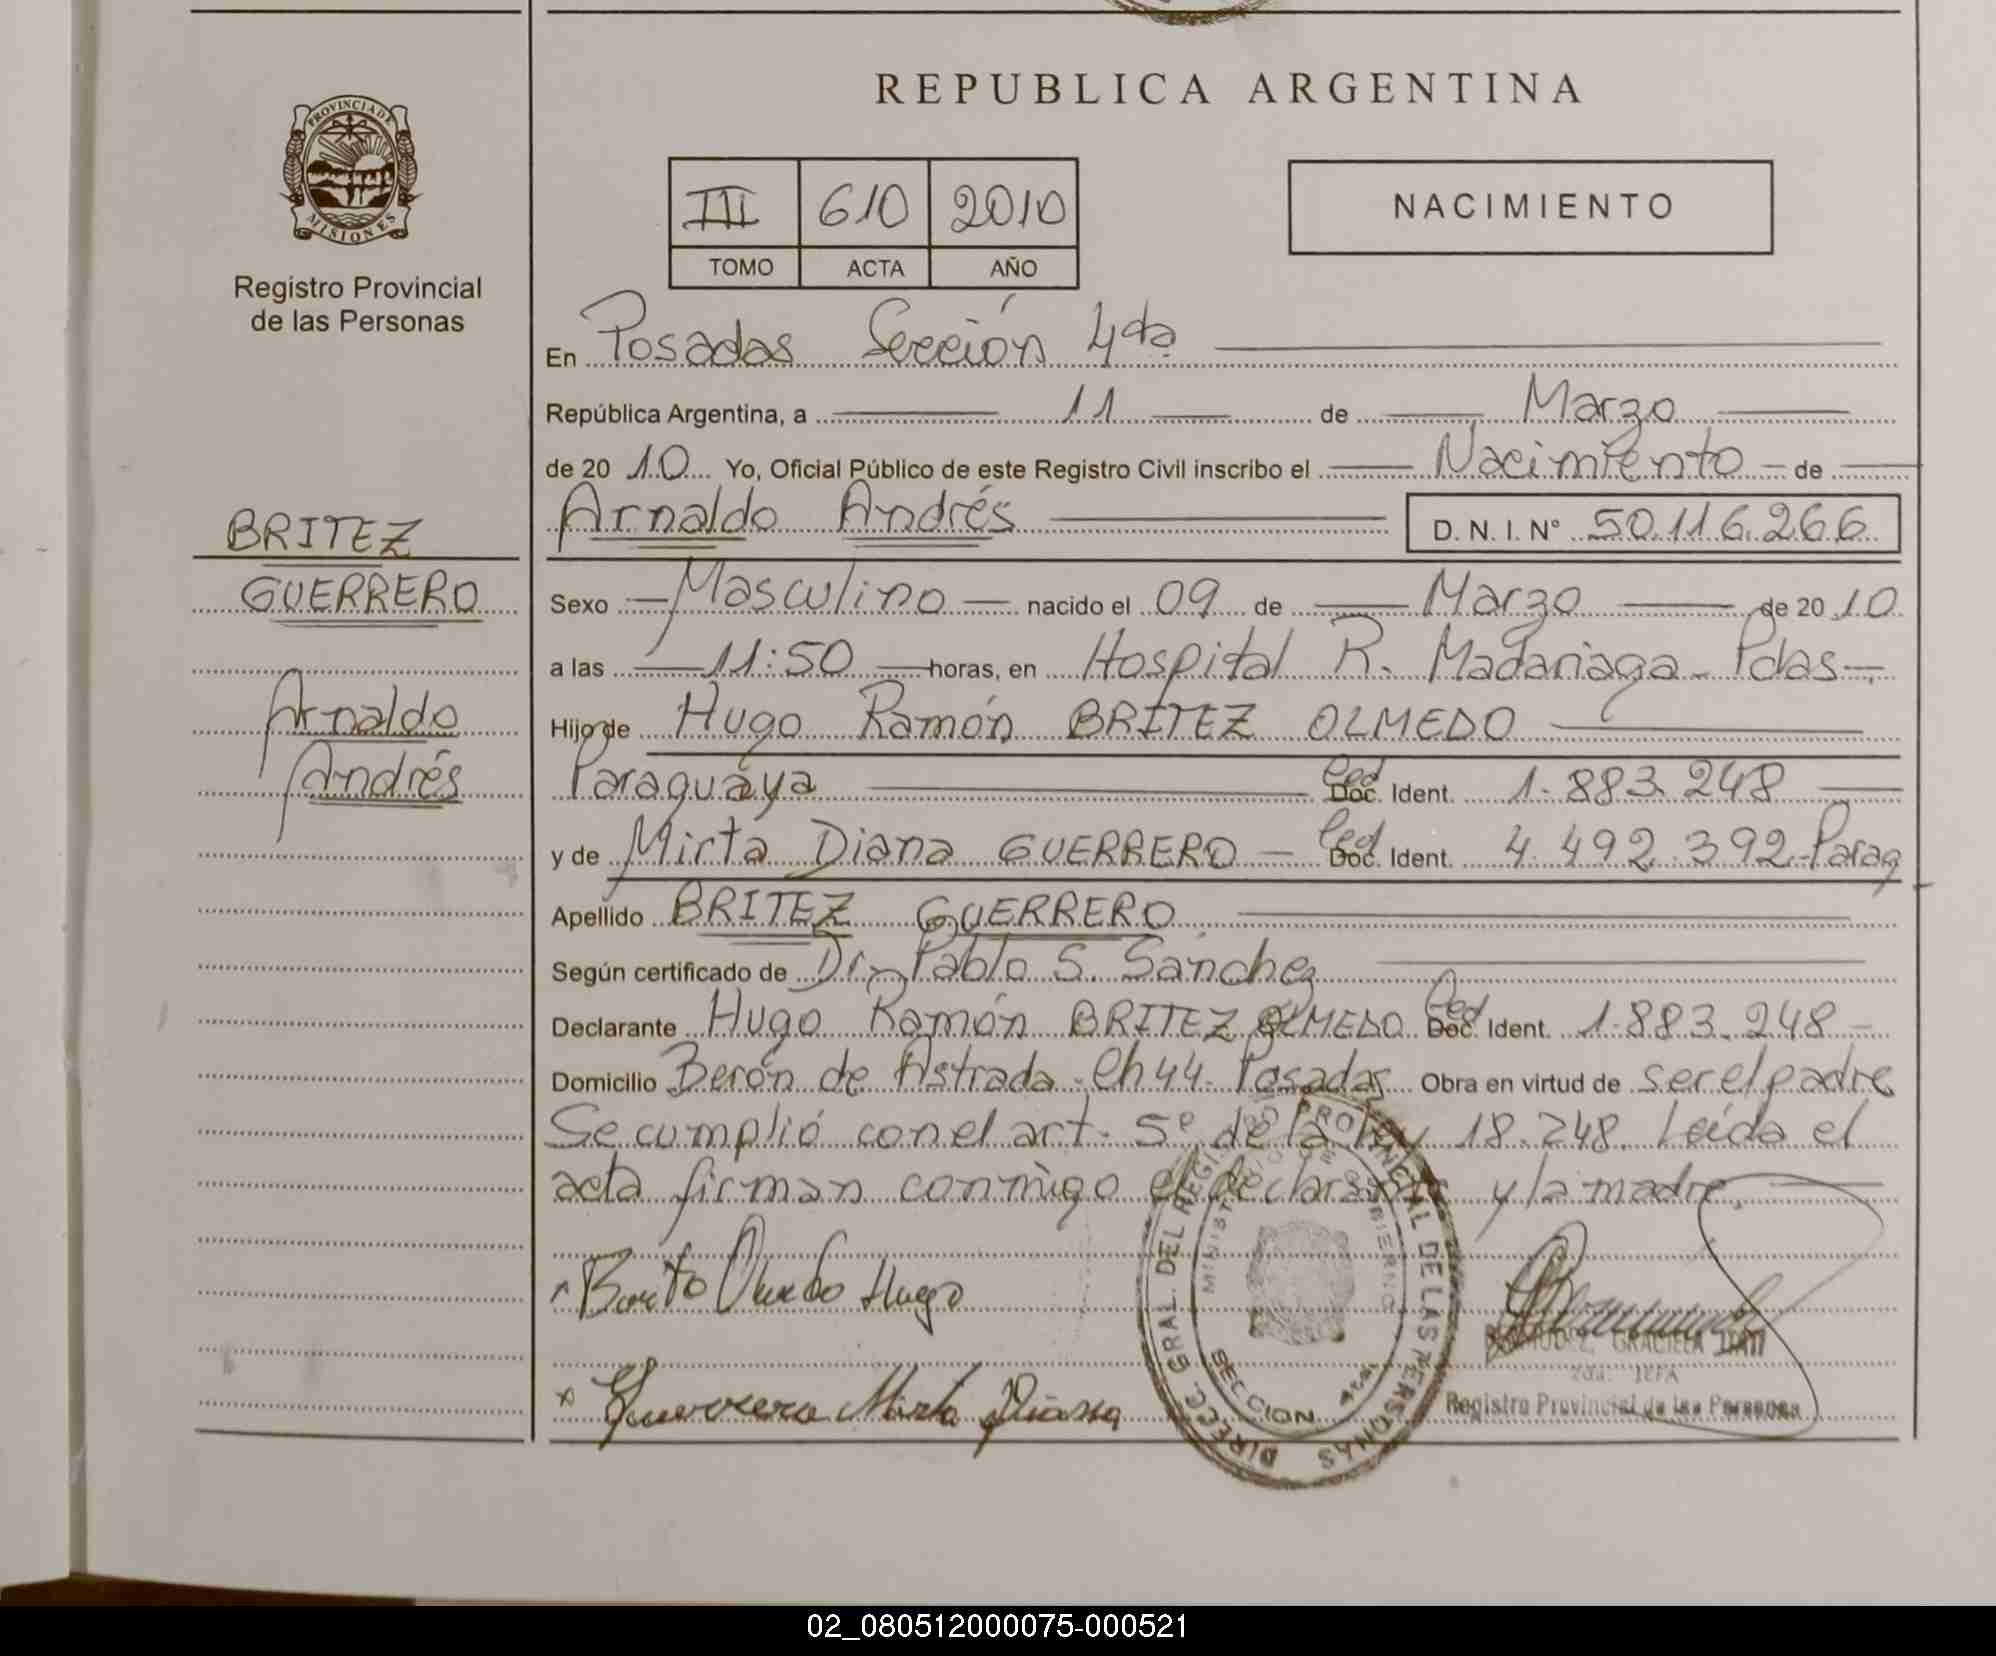 PROVINCIA DE
MISIONES
Registro Provincial
de las Personas
BRITEZ
GUERRERO
Arnaldo
Andrés
REPUBLICA ARGENTINA
III 610 2010
TOMO ACTA AÑO
NACIMIENTO
En Posadas Sección 4ta
República Argentina, a 11 de Marzo
de 20 10 Yo, Oficial Público de este Registro Civil inscribo el Nacimiento de
Arnaldo Andrés D. N. I. N° 50.116.266
Sexo Masculino nacido el 09 de Marzo de 20 10
a las 11:50 horas, en Hospital R. Madariaga - Pdas -
Hijo de Hugo Ramón BRITEZ OLMEDO
Paraguaya Ced Doc. Ident. 1.883.248
y de Mirta Diana GUERRERO - Ced Doc. Ident. 4.492.392-Parag
Apellido BRITEZ GUERRERO
Según certificado de Dr. Pablo S. Sánchez
Declarante Hugo Ramón BRITEZ OLMEDO Ced Doc. Ident. 1.883.248 -
Domicilio Berón de Astrada - Ch 44 - Posadas Obra en virtud de ser el padre
Se cumplió con el art. 5º de la ley 18.248. Leída el
acta firman conmigo el declarante y la madre.
Olmedo Hugo
x Guerrero Mirta Diana
DIRECC. GRAL. DEL REGISTRO PROVINCIAL DE LAS PERSONAS
MINISTERIO DE GOBIERNO
SECCION 4ta
GRACIELA
2da. JEFA
Registro Provincial de las Personas
02_080512000075-000521